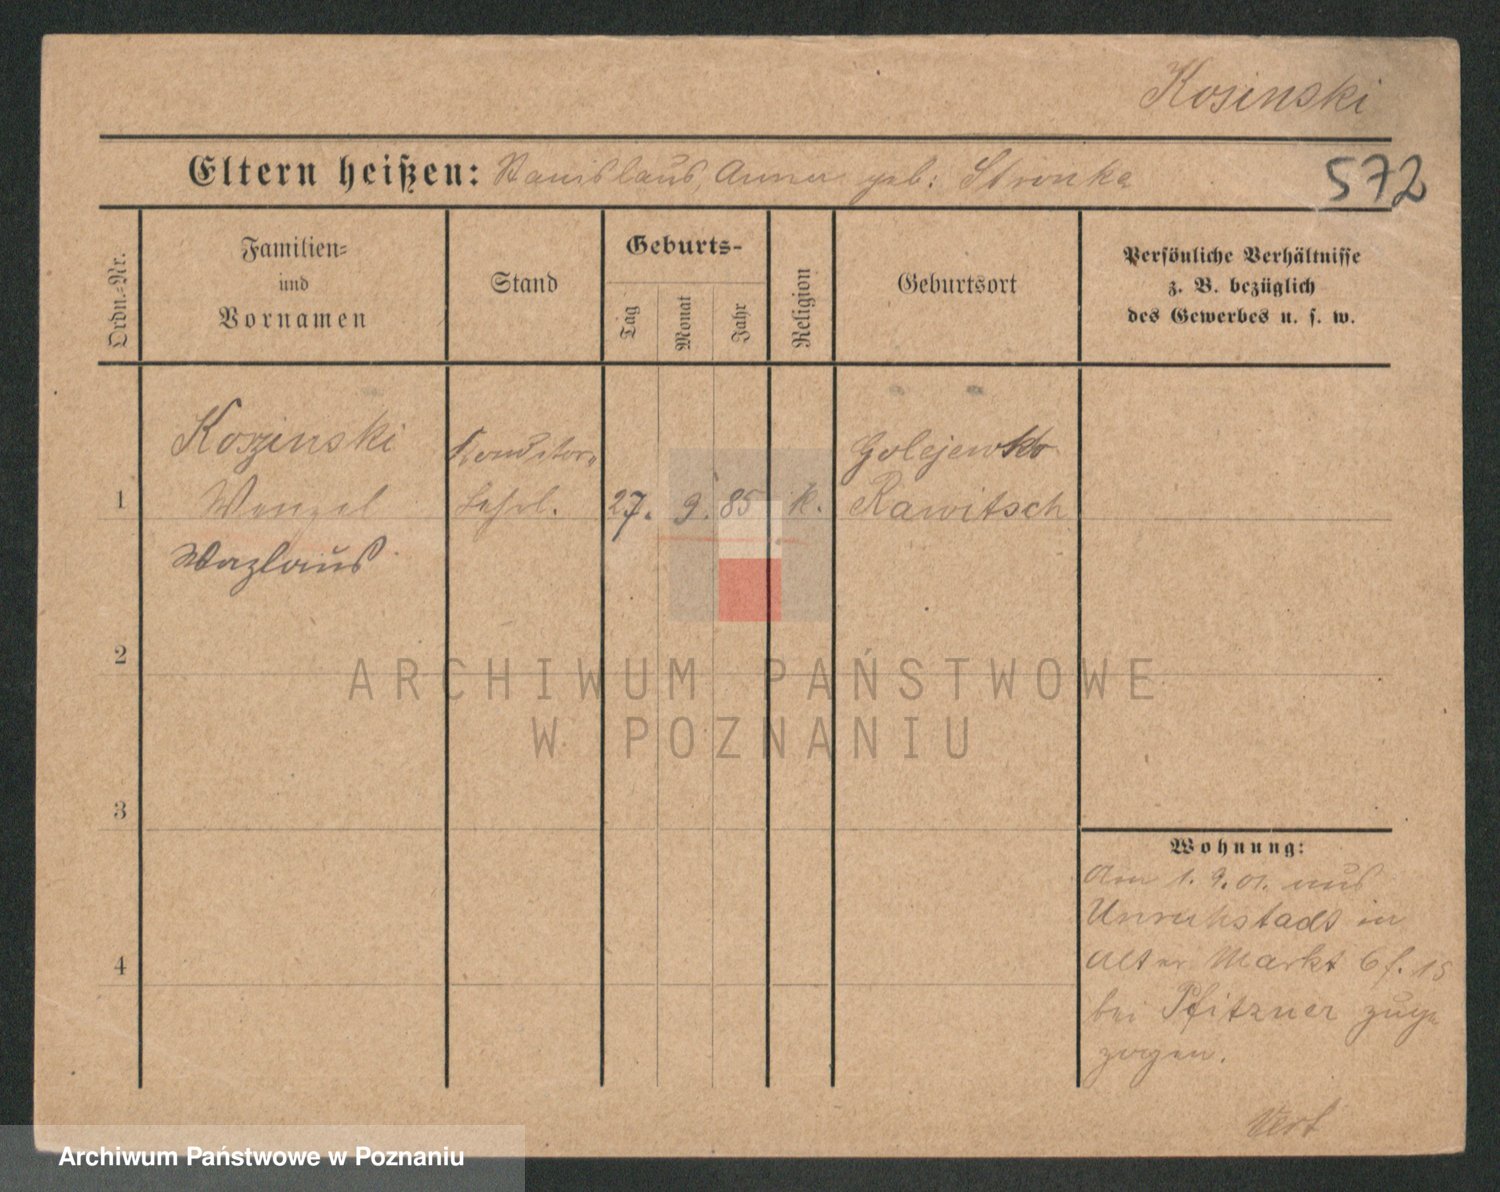 Kosinski
Eltern heißen: Stanislaus, Anna geb: Stronka
572
Ordn.-Nr.
Familien-
und
Vornamen
Stand
Geburts-
Tag
Monat
Jahr
Religion
Geburtsort
Persönliche Verhältnisse
z. B. bezüglich
des Gewerbes u. s. w.
Koszinski
Konditor-
Golejewko
1
Wenzel
Lehrl.
27.
9.
85
k.
Rawitsch
Wazlaus
2
ARCHIWUM PAŃSTWOWE
W POZNANIU
3
Wohnung:
Am 1.9.01. aus
Unruhstadt in
Alter Markt 6 f. 15
4
bei Pfitzner zuge
zogen.
Archiwum Państwowe w Poznaniu